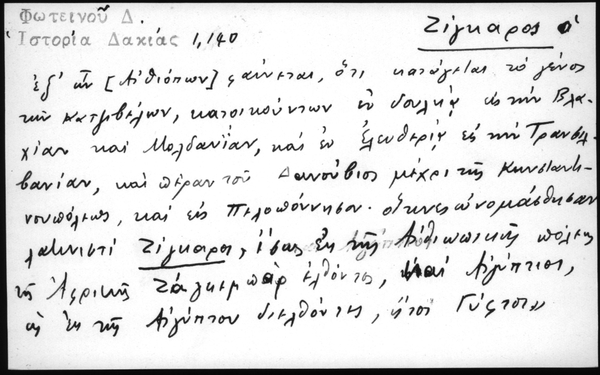 Φωτεινοῦ Δ.
Ἱστορία Δακίας 1,140
Τζίγκαρος ὁ
ἐξ ὧν [Αἰθιόπων] φαίνεται, ὅτι κατάγεται τὸ γένος
τῶν κατζιβέλων, κατοικούντων ἐν δουλείᾳ εἰς τὴν Βλα-
χίαν καὶ Μολδαυΐαν, καὶ ἐν ἐλευθερίᾳ εἰς τὴν Τρανσιλ-
βανίαν, καὶ πέραν τοῦ Δανούβιος μέχρι τῆς Κωνσταντι-
νουπόλεως, καὶ εἰς Πελοπόννησον· οἵτινες ὠνομάσθησαν
λατινιστί Τζίγκαροι, ἐκ τῆς Αἰθιωπικῆς πόλεως
τῆς Ἀφρικῆς ἐλθόντες, καὶ Αἰγύπτιοι,
ὡς ἐκ τῆς Αἰγύπτου διελθόντες, ἤτοι Γύφτοι»